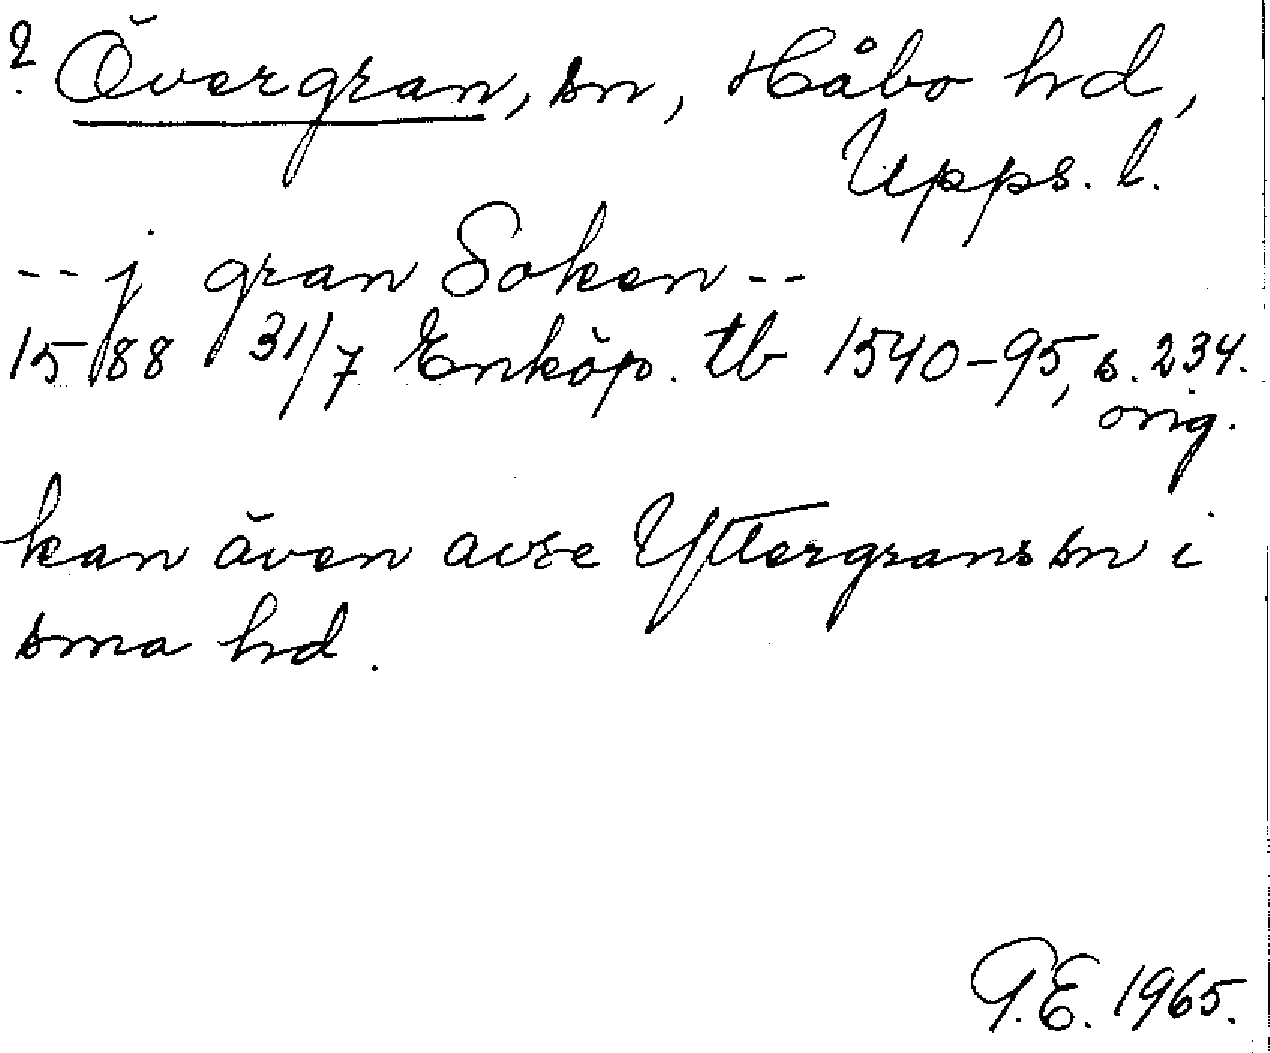 ? Övergran, sn, Håbo hd,
Upps. l.
-- j gran Soken --
1588 31/7 Enköp. tb 1540-95, s. 234.
orig.
kan även avse Yttergrans sn i
sma hd.
G.E. 1965.